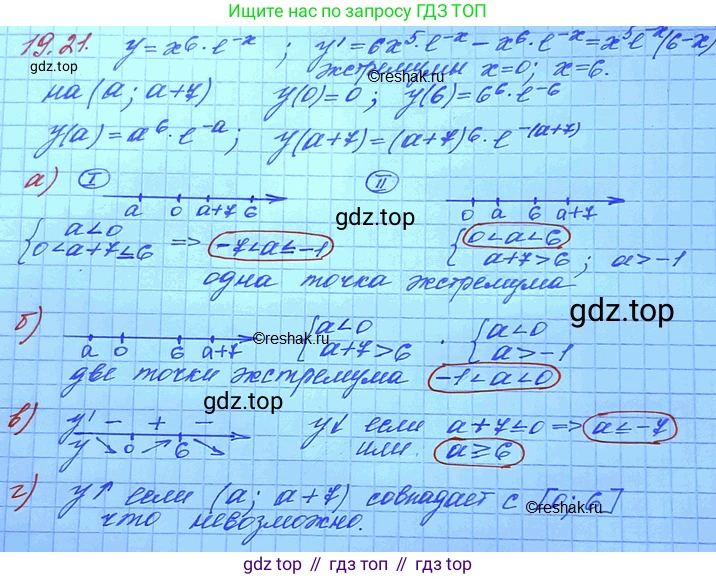 Ищите нас по запросу ГДЗ ТОП
19.21. y = x⁶·e⁻ˣ ; y' = 6x⁵·e⁻ˣ − x⁶·e⁻ˣ = x⁵e⁻ˣ(6−x)
экстремумы x=0; x=6.
©reshak.ru
gdz.top
на (a; a+7) y(0)=0; y(6)=6⁶·e⁻⁶
y(a)=a⁶·e⁻ᵃ; y(a+7)=(a+7)⁶·e^{-(a+7)}
а) I II
a 0 a+7 6 0 a 6 a+7
gdz.top
{ a<0 0<a+7≤6 => -7<a≤-1 { 0<a<6 a+7>6; a>-1
одна точка экстремума
gdz.top
б) a 0 6 a+7 { a<0 a+7>6 . { a<0 a>-1
©reshak.ru
две точки экстремума -1<a<0
gdz.top
в) y' − + − y↓ если a+7≤0 => a≤-7
y ↘ 0 ↗ 6 ↘ или a≥6
©reshak.ru
г) y↑ если (a; a+7) совпадает с [0; 6]
что невозможно.
gdz.top // гдз.топ // gdz.top